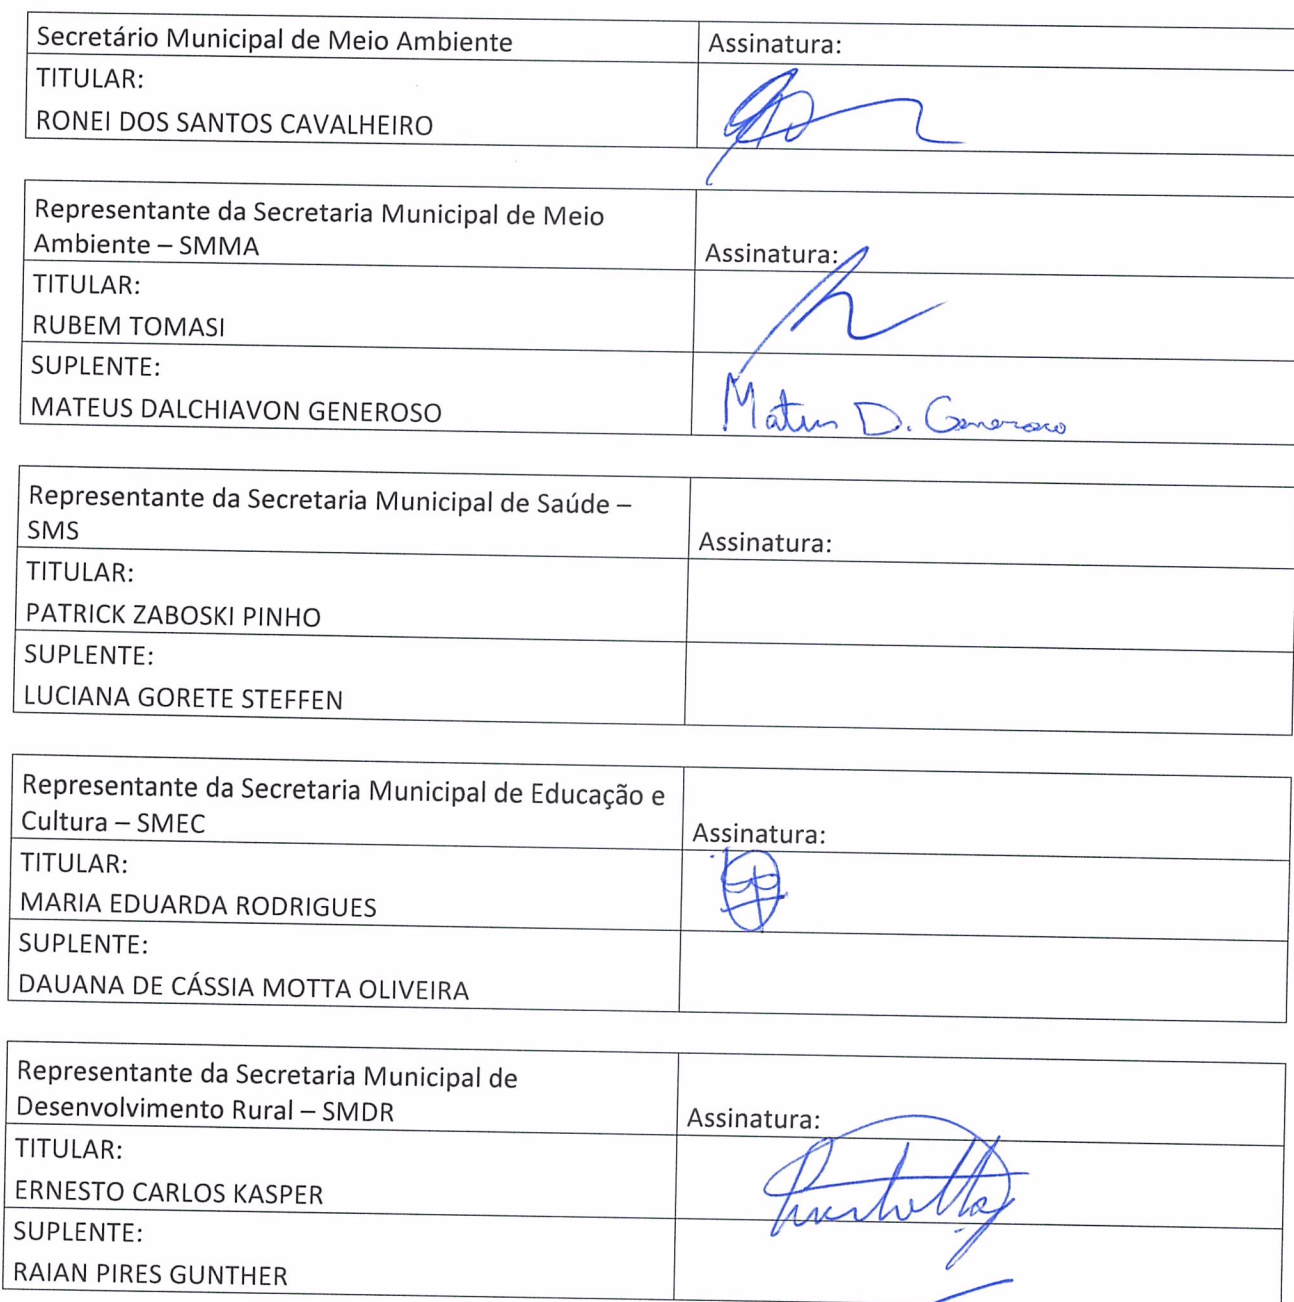 Secretário Municipal de Meio Ambiente
Assinatura:
TITULAR:
RONEI DOS SANTOS CAVALHEIRO
Representante da Secretaria Municipal de Meio
Ambiente – SMMA
Assinatura:
TITULAR:
RUBEM TOMASI
SUPLENTE:
MATEUS DALCHIAVON GENEROSO
Mateus D. Generoso
Representante da Secretaria Municipal de Saúde –
SMS
Assinatura:
TITULAR:
PATRICK ZABOSKI PINHO
SUPLENTE:
LUCIANA GORETE STEFFEN
Representante da Secretaria Municipal de Educação e
Cultura – SMEC
Assinatura:
TITULAR:
MARIA EDUARDA RODRIGUES
SUPLENTE:
DAUANA DE CÁSSIA MOTTA OLIVEIRA
Representante da Secretaria Municipal de
Desenvolvimento Rural – SMDR
Assinatura:
TITULAR:
ERNESTO CARLOS KASPER
SUPLENTE:
RAIAN PIRES GUNTHER